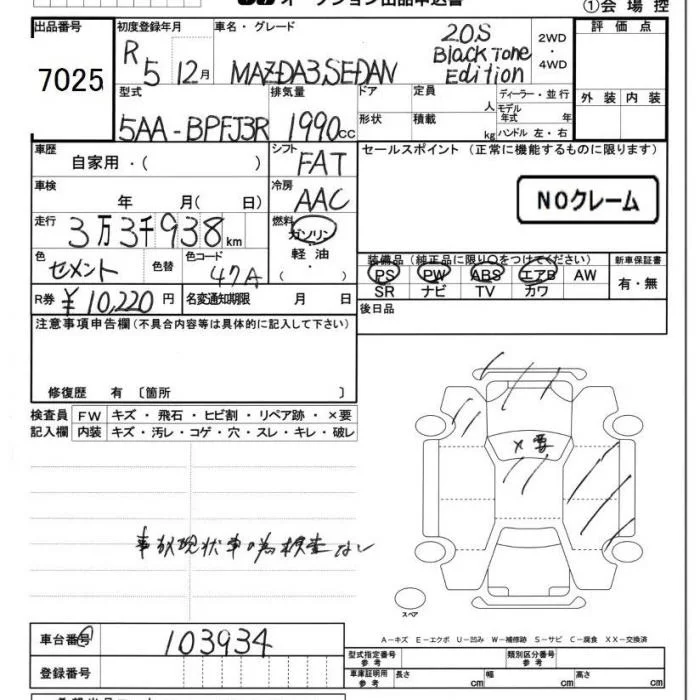 オークション出品申込書 ①会場控
出品番号 初度登録年月 車名・グレード 評価点
7025 R 5 12月 MAZDA3,SEDAN 20S Black Tone Edition 2WD ・ 4WD
型式 排気量 ドア 定員 人 ディーラー・並行 外装 内装
5AA-BPFJ3R 1990cc 形状 積載 kg モデル年式 年 ハンドル 左・右
車歴 シフト セールスポイント（正常に機能するものに限ります）
自家用・（ ） FAT
車検 冷房 NOクレーム
年 月（ 日） AAC
走行 燃料
3万3千938km ガソリン
色 色替 色コード 軽油 装備品（純正品に限り〇をつけてください） 新車保証書
セメント 47A ・（ ） PS PW ABS エアB AW 有・無
R券 ¥10,220円 名変通知期限 月 日 SR ナビ TV カワ
注意事項申告欄（不具合内容等は具体的に記入して下さい） 後日品
修復歴 有 〔箇所 〕
検査員 FW キズ・飛石・ヒビ割・リペア跡・×要
記入欄 内装 キズ・汚レ・コゲ・穴・スレ・キレ・破レ
×要
事故現状車の為検査なし
スペア
車台番号 103934
A－キズ E－エクボ U－凹み W－補修跡 S－サビ C－腐食 XX－交換済
型式指定番号 参考 類別区分番号 参考
登録番号 車庫証明用 参考 長さ cm 幅 cm 高さ cm